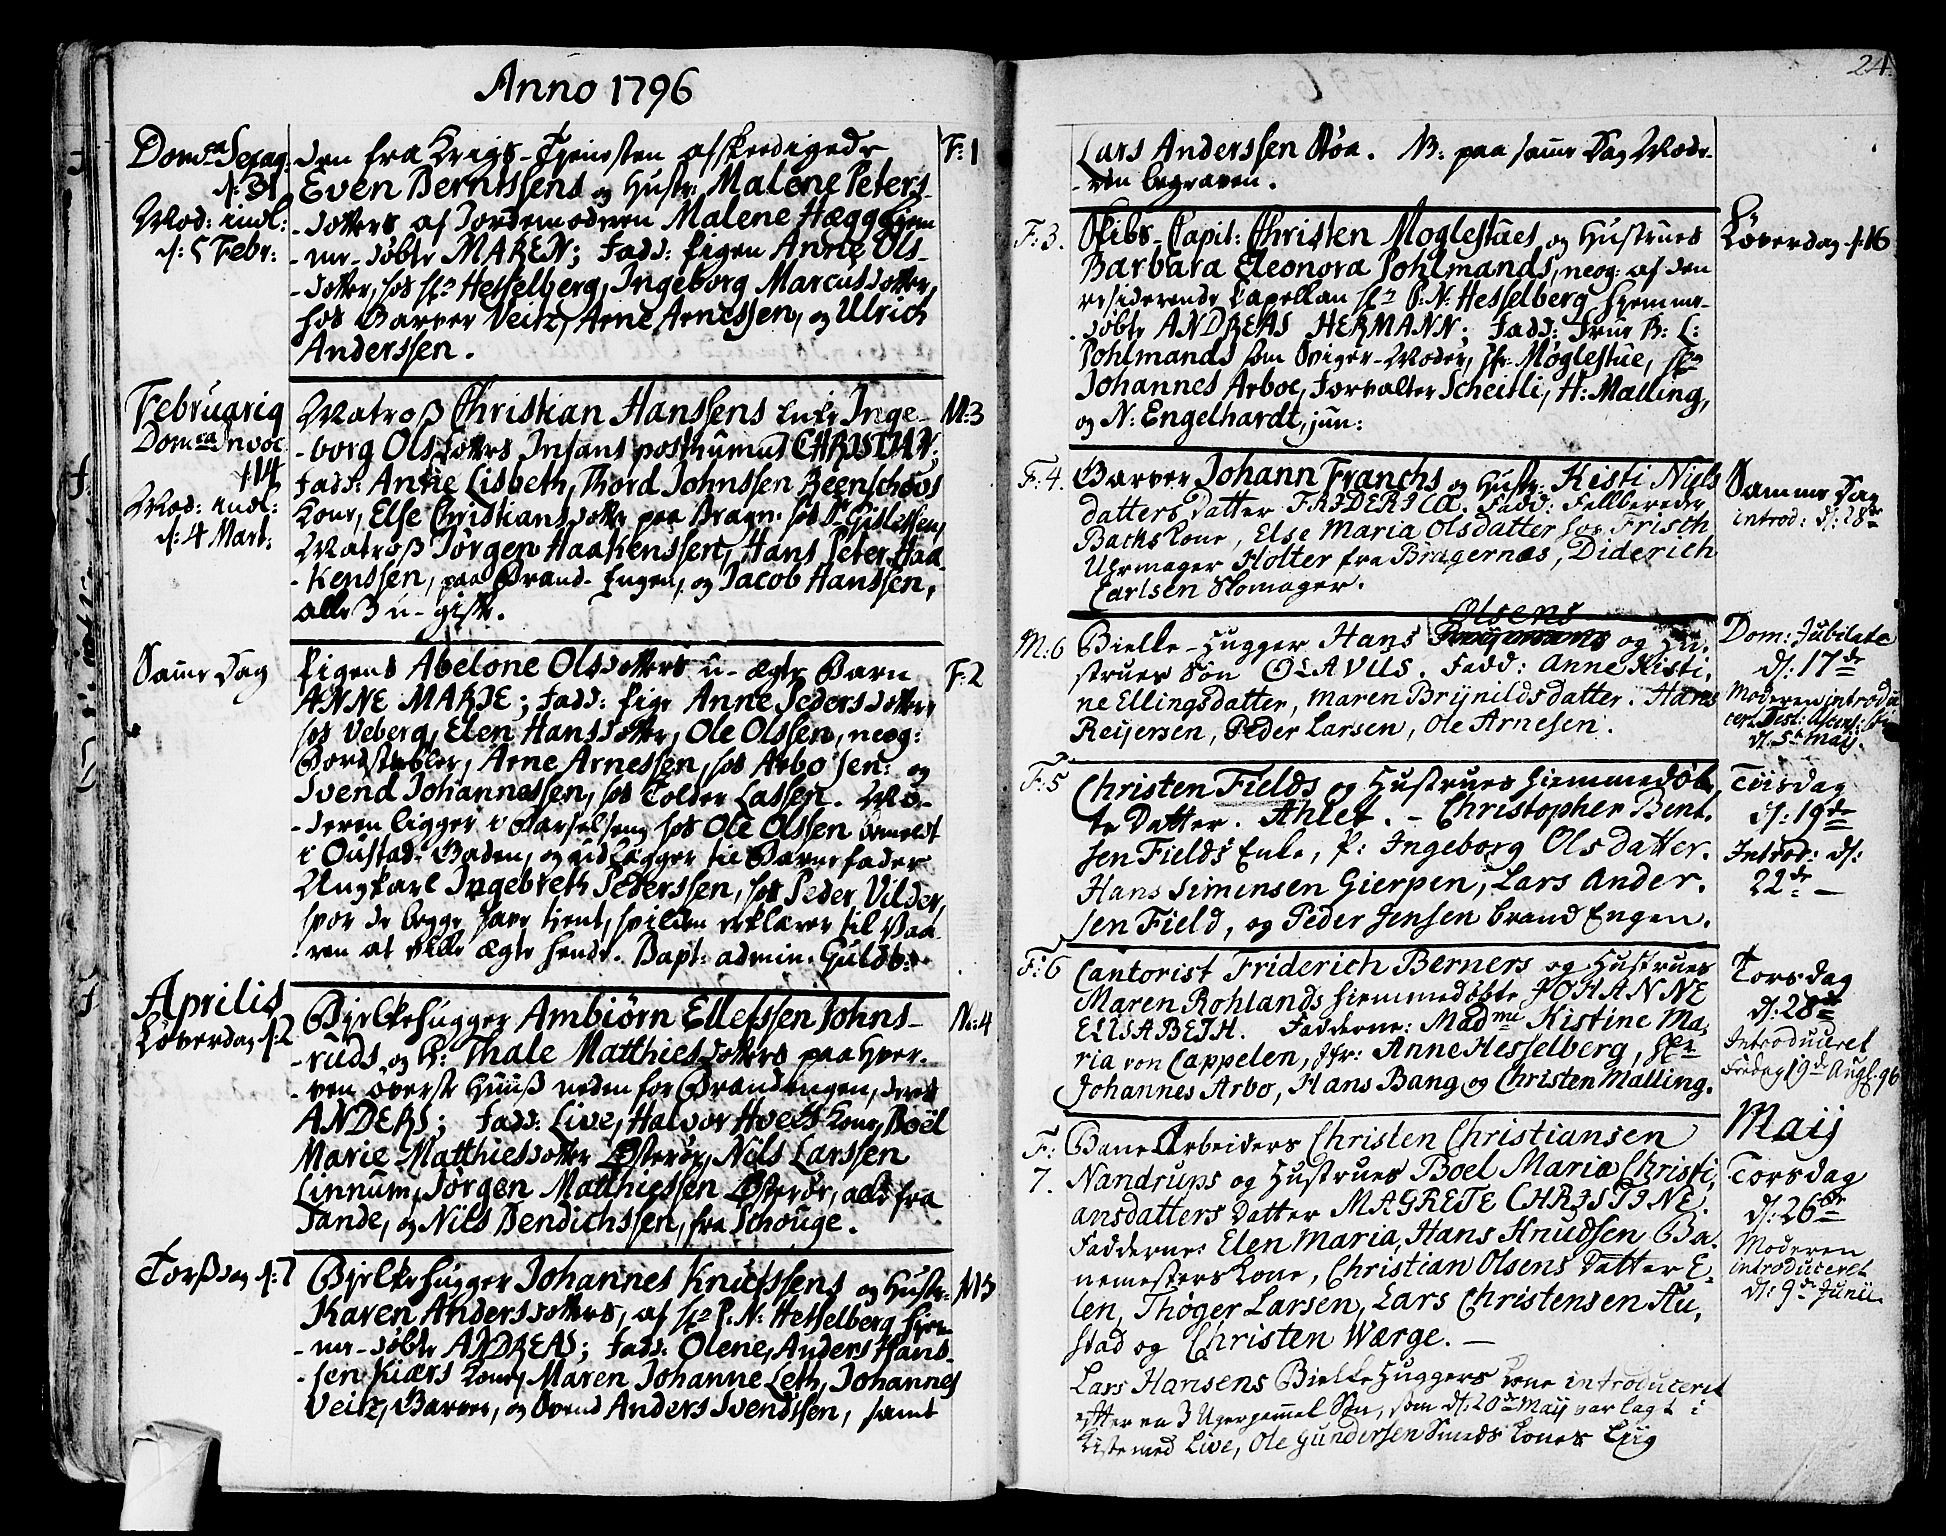 Anno 1796
Dom:ca Sexag:
d: 31
Mod: indl:
d: 5 Febr:
den fra Krigs-Tjenesten afskeedigede
Even Berntssens og Hustr: Malene Peters-
-dotters af Jordemoderen Malene Hægg hjem
-me-døbte MAREN; Fadd: Pigen Anne Ols-
-dotter, hos Hr. Hesselberg, Ingeborg Marcusdotter,
hos Garver Veitz, Arne Arnessen, og Ulrich
Anderssen.
F: 1
Februarij
Dom:ca Invoc
d: 14
Mod: indl:
d: 4 Mart:
Matroß Christian Hanssens Enke Inge-
-borg Olsdotters Infans posthumus CHRISTIAN;
Fadd: Anne Lisbeth, Thord Johnssen Beenschovs
Kone, Else Christiansdotter paa Bragn: hos
Matroß Jørgen Haakenssen, Hans Peter Haa-
-kenssen, paa Brand-Engen, og Jacob Hanssen,
alle 3 u-gifte.
M: 3
Samme Dag
Pigens Abelone Olsdotters u-ægte Barn
ANNE MARIE; Fadd: Pige Anne Pedersdotter
hos Veberg, Elen Hansdotter, Ole Olssen, neog:
Bordstabler, Arne Arnessen, hos Arbo sen: og
Svend Johannessen, hos Tolder Lassen. Mo-
-deren ligger i Barselseng hos Ole Olssen
i Gustad-Gaden, og udlægger til Barnefader
Ungkarl Ingebreth Pederssen, hos Peder Vilder,
hvor de begge have tient, hvilken erklærer til Vaa-
-ren at ville ægte hende. Bapt: admin: Guldb:
F: 2
Aprilis
Løverdag d: 2
Bjelkehugger Ambiørn Ellefssen Johns-
-ruds, og H: Thale Matthiesdotters paa Hver-
-ven øverste Huuß neden for Brandengen, deres
ANDERS; Fadd: Live, Halvor Hvets Kone, Boël
Marie Matthiesdotter Østerøe, Nils Larssen
Linnum, Jørgen Matthiessen Østerøe, alle fra
Sande, og Nils Bendichssen, fra Schouge.
M: 4
Torßdag d: 7
Bjelkehugger Johannes Knudssens og Hustr:
Karen Andersdotters, af Hr. P. N: Hesselberg hjem-
-me-døbte ANDREAS; Fadd: Olene, Anders Hans-
-sen Kiærs Kone, Maren Johanne Leth, Johannes
Veitz, Garver, og Svend Anders Svendssen, samt
M: 5
24.
Lars Anderssen Røa. NB: paa samme Dag Mode-
-ren begraven.
F: 3.
Skibs-Capit: Christen Moglestues og Hustrues
Barbara Eleonora Pohlmands, neog: af den
residerende Capellan Hr. P: N: Hesselberg hjemme-
-døbte ANDREAS HERMANN; Fadd: Frue B: L:
Pohlmands som Sviger-Moder, Jfr: Møglestue, Hr.
Johannes Arboe, Forvalter Scheitli, H: Malling,
og N: Engelhardt, jun:
Løverdag d: 16
F: 4.
Garver Johann Franchs og Hustr: Kisti Niels
datters Datter FRIDERICA. Fadd: Fellberede
Bachs Kone, Else Maria Olsdatter hos Frisch
Uhrmager Holter fra Bragernæs, Diderich
Carlsen Skomager.
Samme Dag
introd: d: 28de
M: 6
Bielke-Hugger Hans Olsens og Hu-
strues Søn OLAVUS. Fadd: Anne Kisti-
ne Ellingsdatter, Maren Brynildsdatter. Hans
Reijersen, Peder Larsen, Ole Arnesen.
Dom: Jubilate
d: 17de
Moderen introdu
cert Fest: Ascens:
d: 5te Maij.
F: 5
Christen Fields og Hustrues hiemmedøb-
te Datter. Ahlet. - Christopher Bent-
sen Fields Enke, P: Ingeborg Olsdatter.
Hans Simensen Gierpen, Lars Ander-
sen Field, og Peder Jensen Brand Engen.
Tiisdag
d: 19de
Introd: d:
22de -
F: 6
Cantorist Friderich Berners og Hustrues
Maren Rohlands hiemmedøbte JOHANNE
ELISABETH. Fadderne: Madme Kistine Ma-
ria von Cappelen, Jfr: Anne Hesselberg, Hr
Johannes Arbo, Hans Bang og Christen Malling.
Torsdag
d: 28de
Introduceret
Fredag 19de Augs. 96
F:
7.
Bane Arbeiders Christen Christiansen
Nandrups og Hustrues Boel Maria Christi-
ansdatters Datter MAGRETE CHRISTINE.
Fadderne: Elen Maria, Hans Knudsen Ba-
nemesters Kone, Christian Olsens Datter E-
len, Thøger Larsen, Lars Christensen Au-
stad og Christen Wærge. -
Maij
Torsdag
d: 26de
Moderen
introduceret
d: 9de Junii.
Lars Hansens Bielkehuggers Kone introduceret
efter en 3 Uger gammel Søn, som d: 20de Maij var lagt i
Kiste med Live, Ole Gundersen Smeds Kones Liig